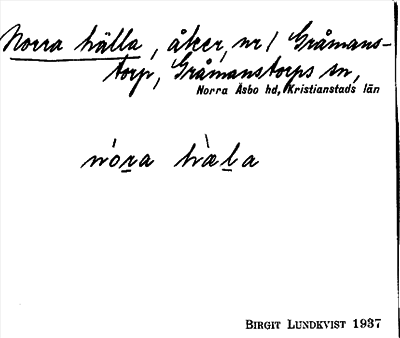 Norra hälla, åker, nr 1 Gråmans-
torp, Gråmanstorps sn,
Norra Åsbo hd, Kristianstads län
nóra hæ̀la
BIRGIT LUNDKVIST 1937